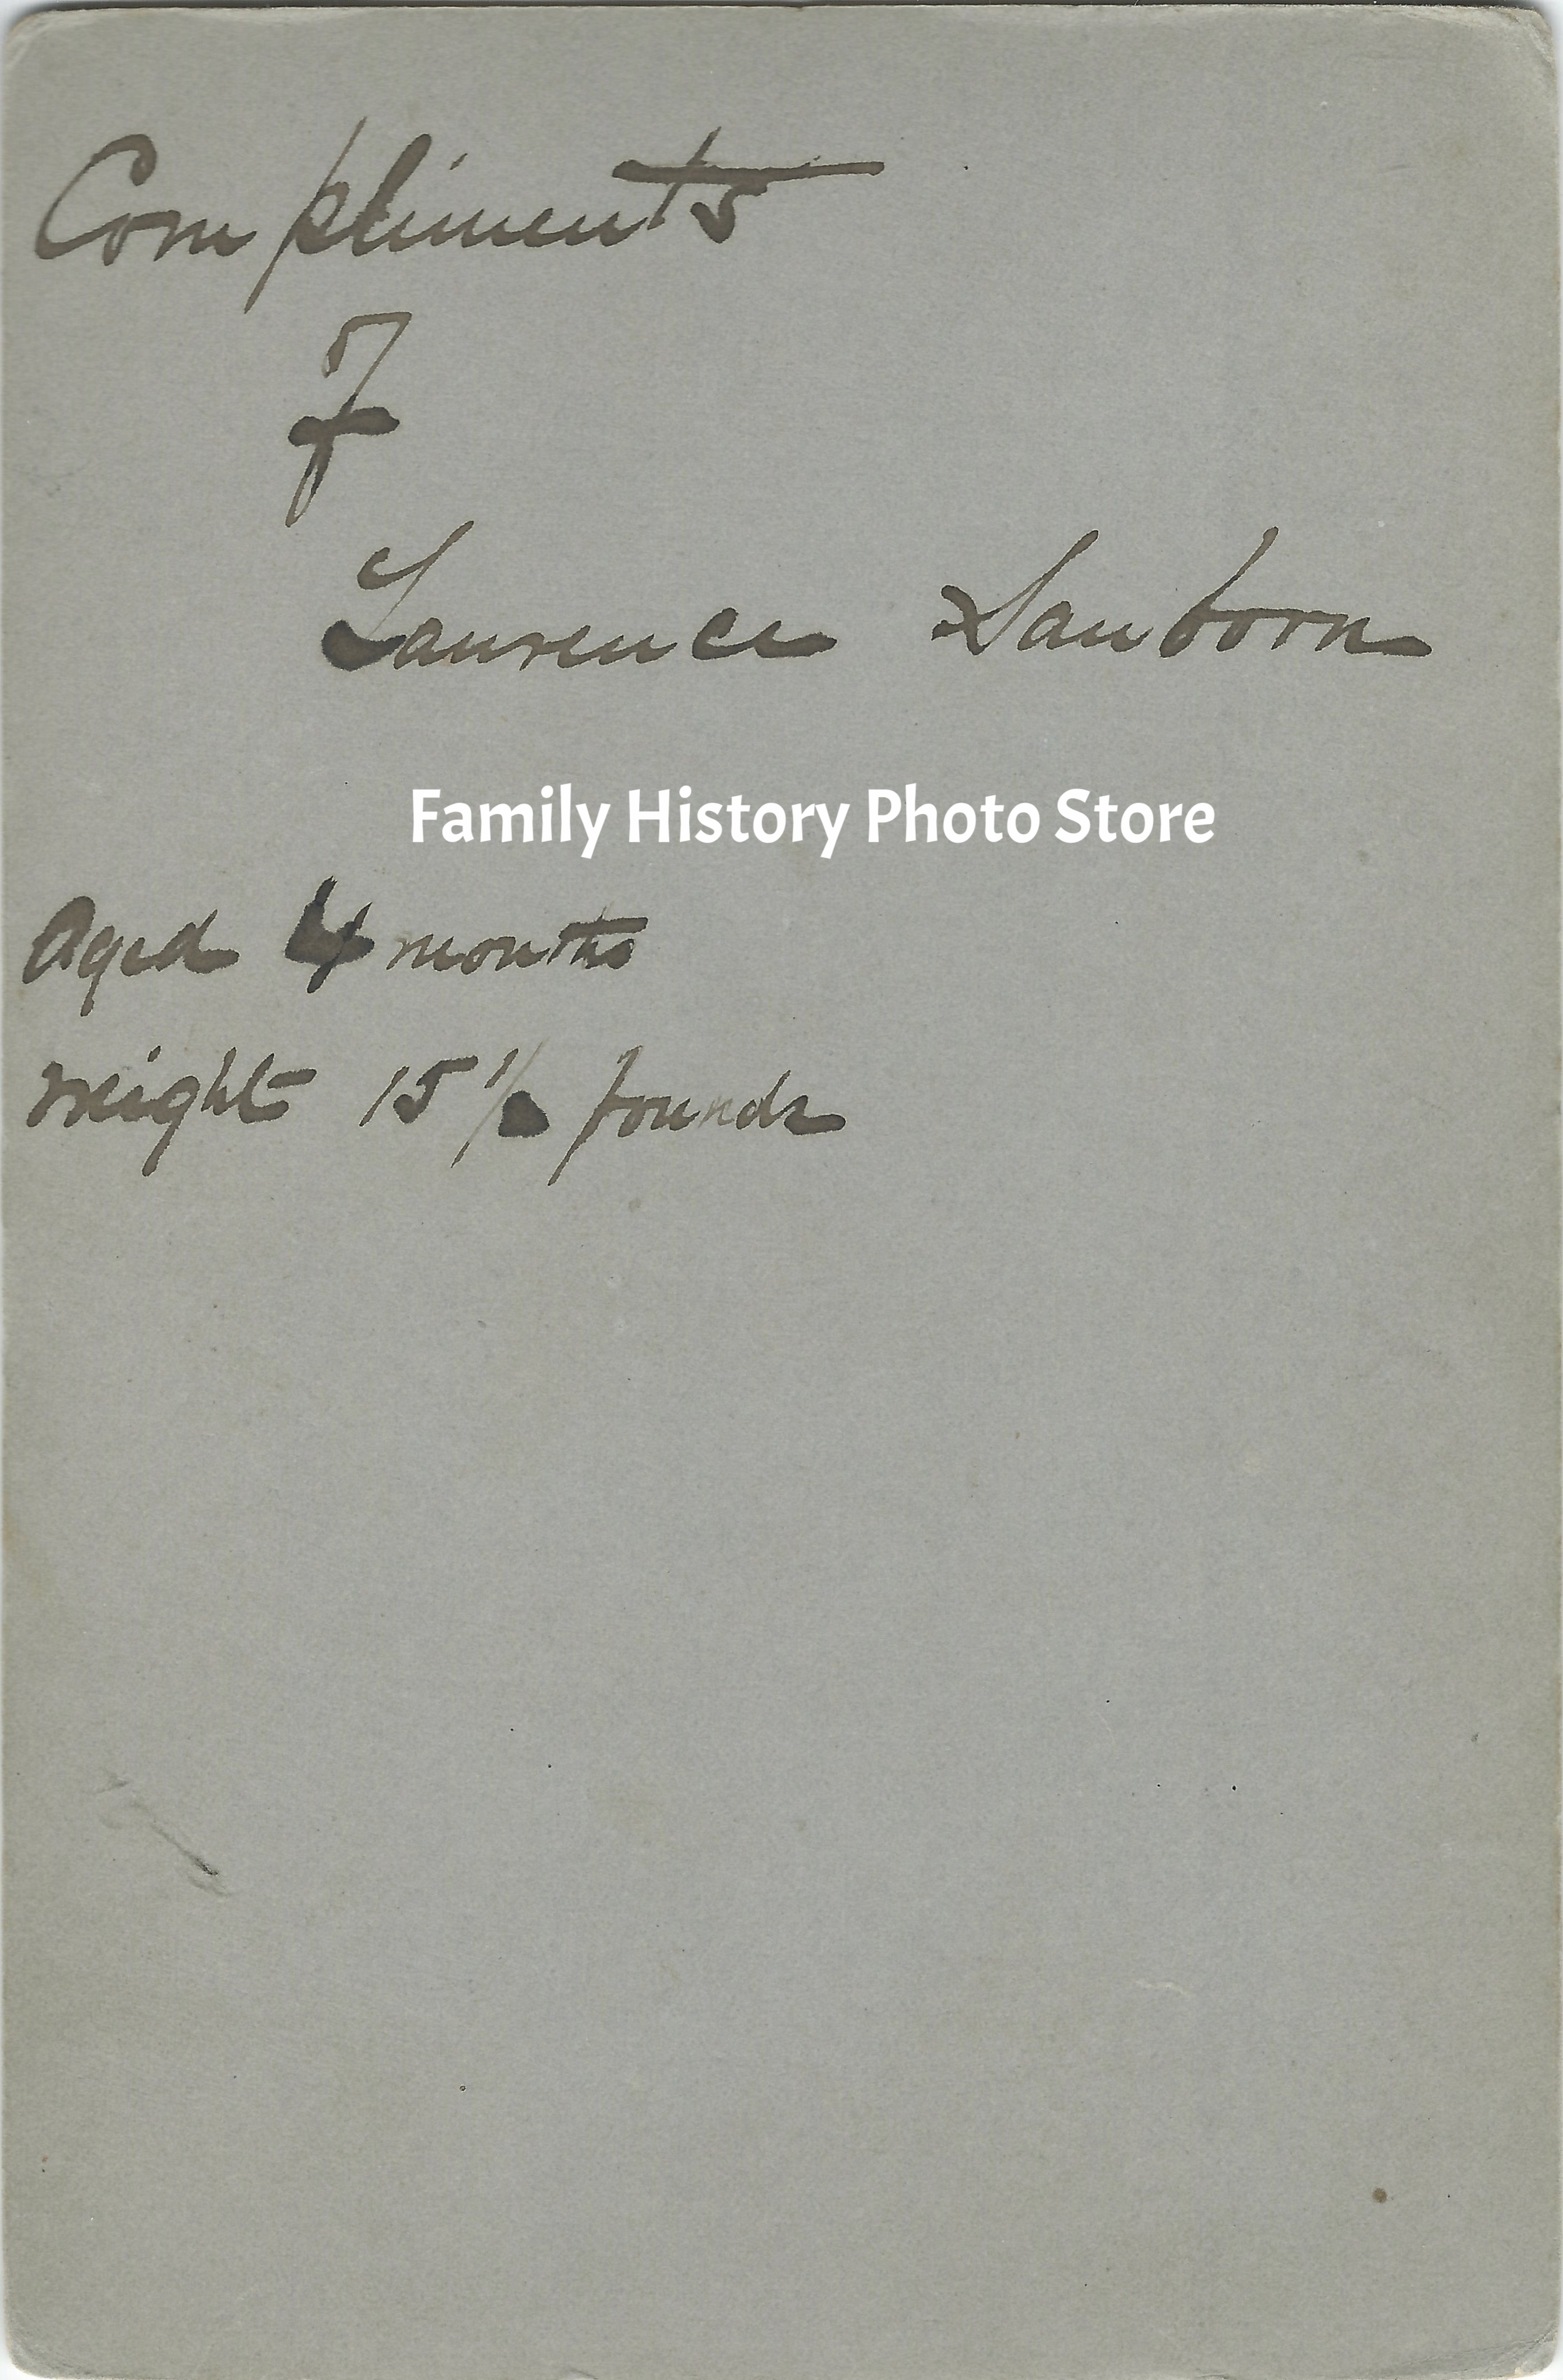 Compliments
of
Laurence Sanborn
Family History Photo Store
Aged 4 months
weight 15 1/2 pounds